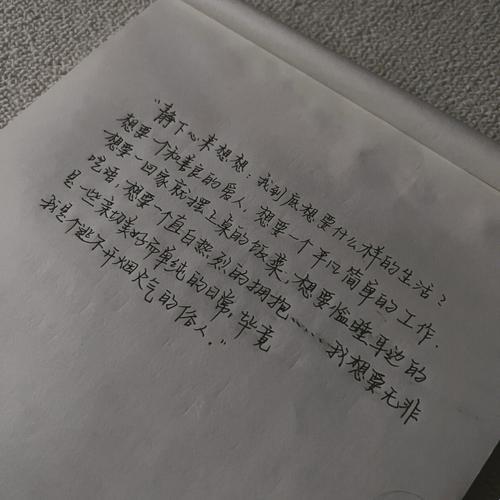 “静下心来想想，我到底想要什么样的生活？
想要一个和善良的爱人，想要一个平凡简单的工作.
想要一回家就摆上桌的饭菜，想要临睡耳边的
吃语，想要一个直白热烈的拥抱……我想要无非
是一些亲切美好而单纯的日常，毕竟
我是个逃不开烟火气的俗人。”